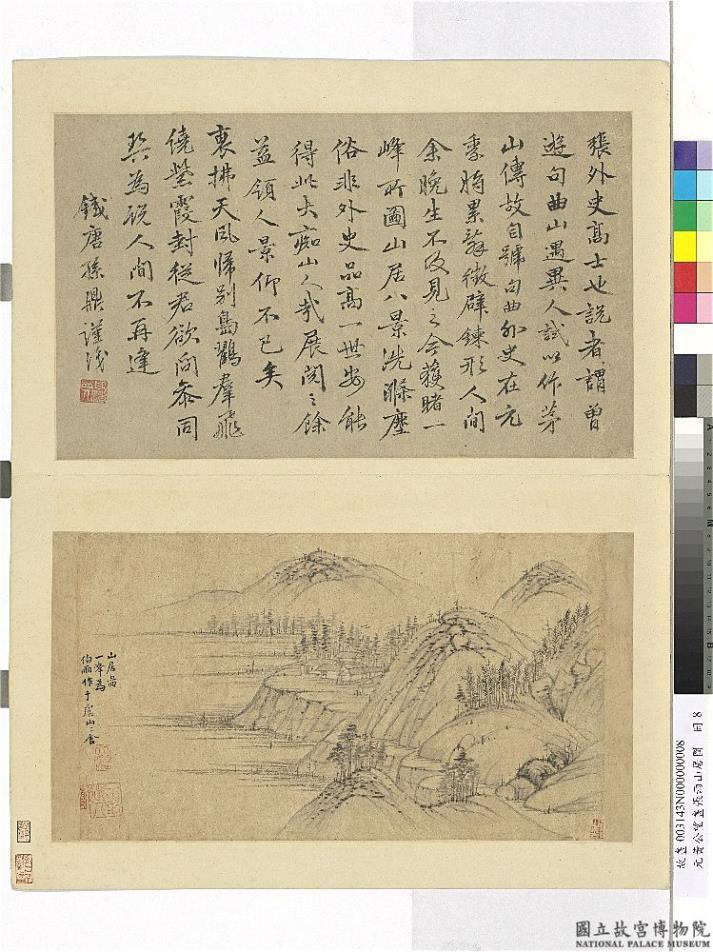 張外史高士也說者謂曾
遊句曲山遇異人試以作茅
山傳故自號句曲外史在元
季躋累辭徵辟鍊形人間
余晚生不及見之今獲睹一
峰所圖山居八景洗滌塵
俗非外史品高一世安能
得此大癡山人哉展閱之餘
益領人景仰不已矣
裏拂天風歸別島鸛羣飛
繞瑩霞封從君欲問參同
契為說人間不再逢
鐵唐孫鼎謹識
山居畵
一峯為
伯雨作于虞山之舍
故畫 003143N000000008
元黃公望畫張雨山居閣 冊 8
國立故宮博物院
NATIONAL PALACE MUSEUM